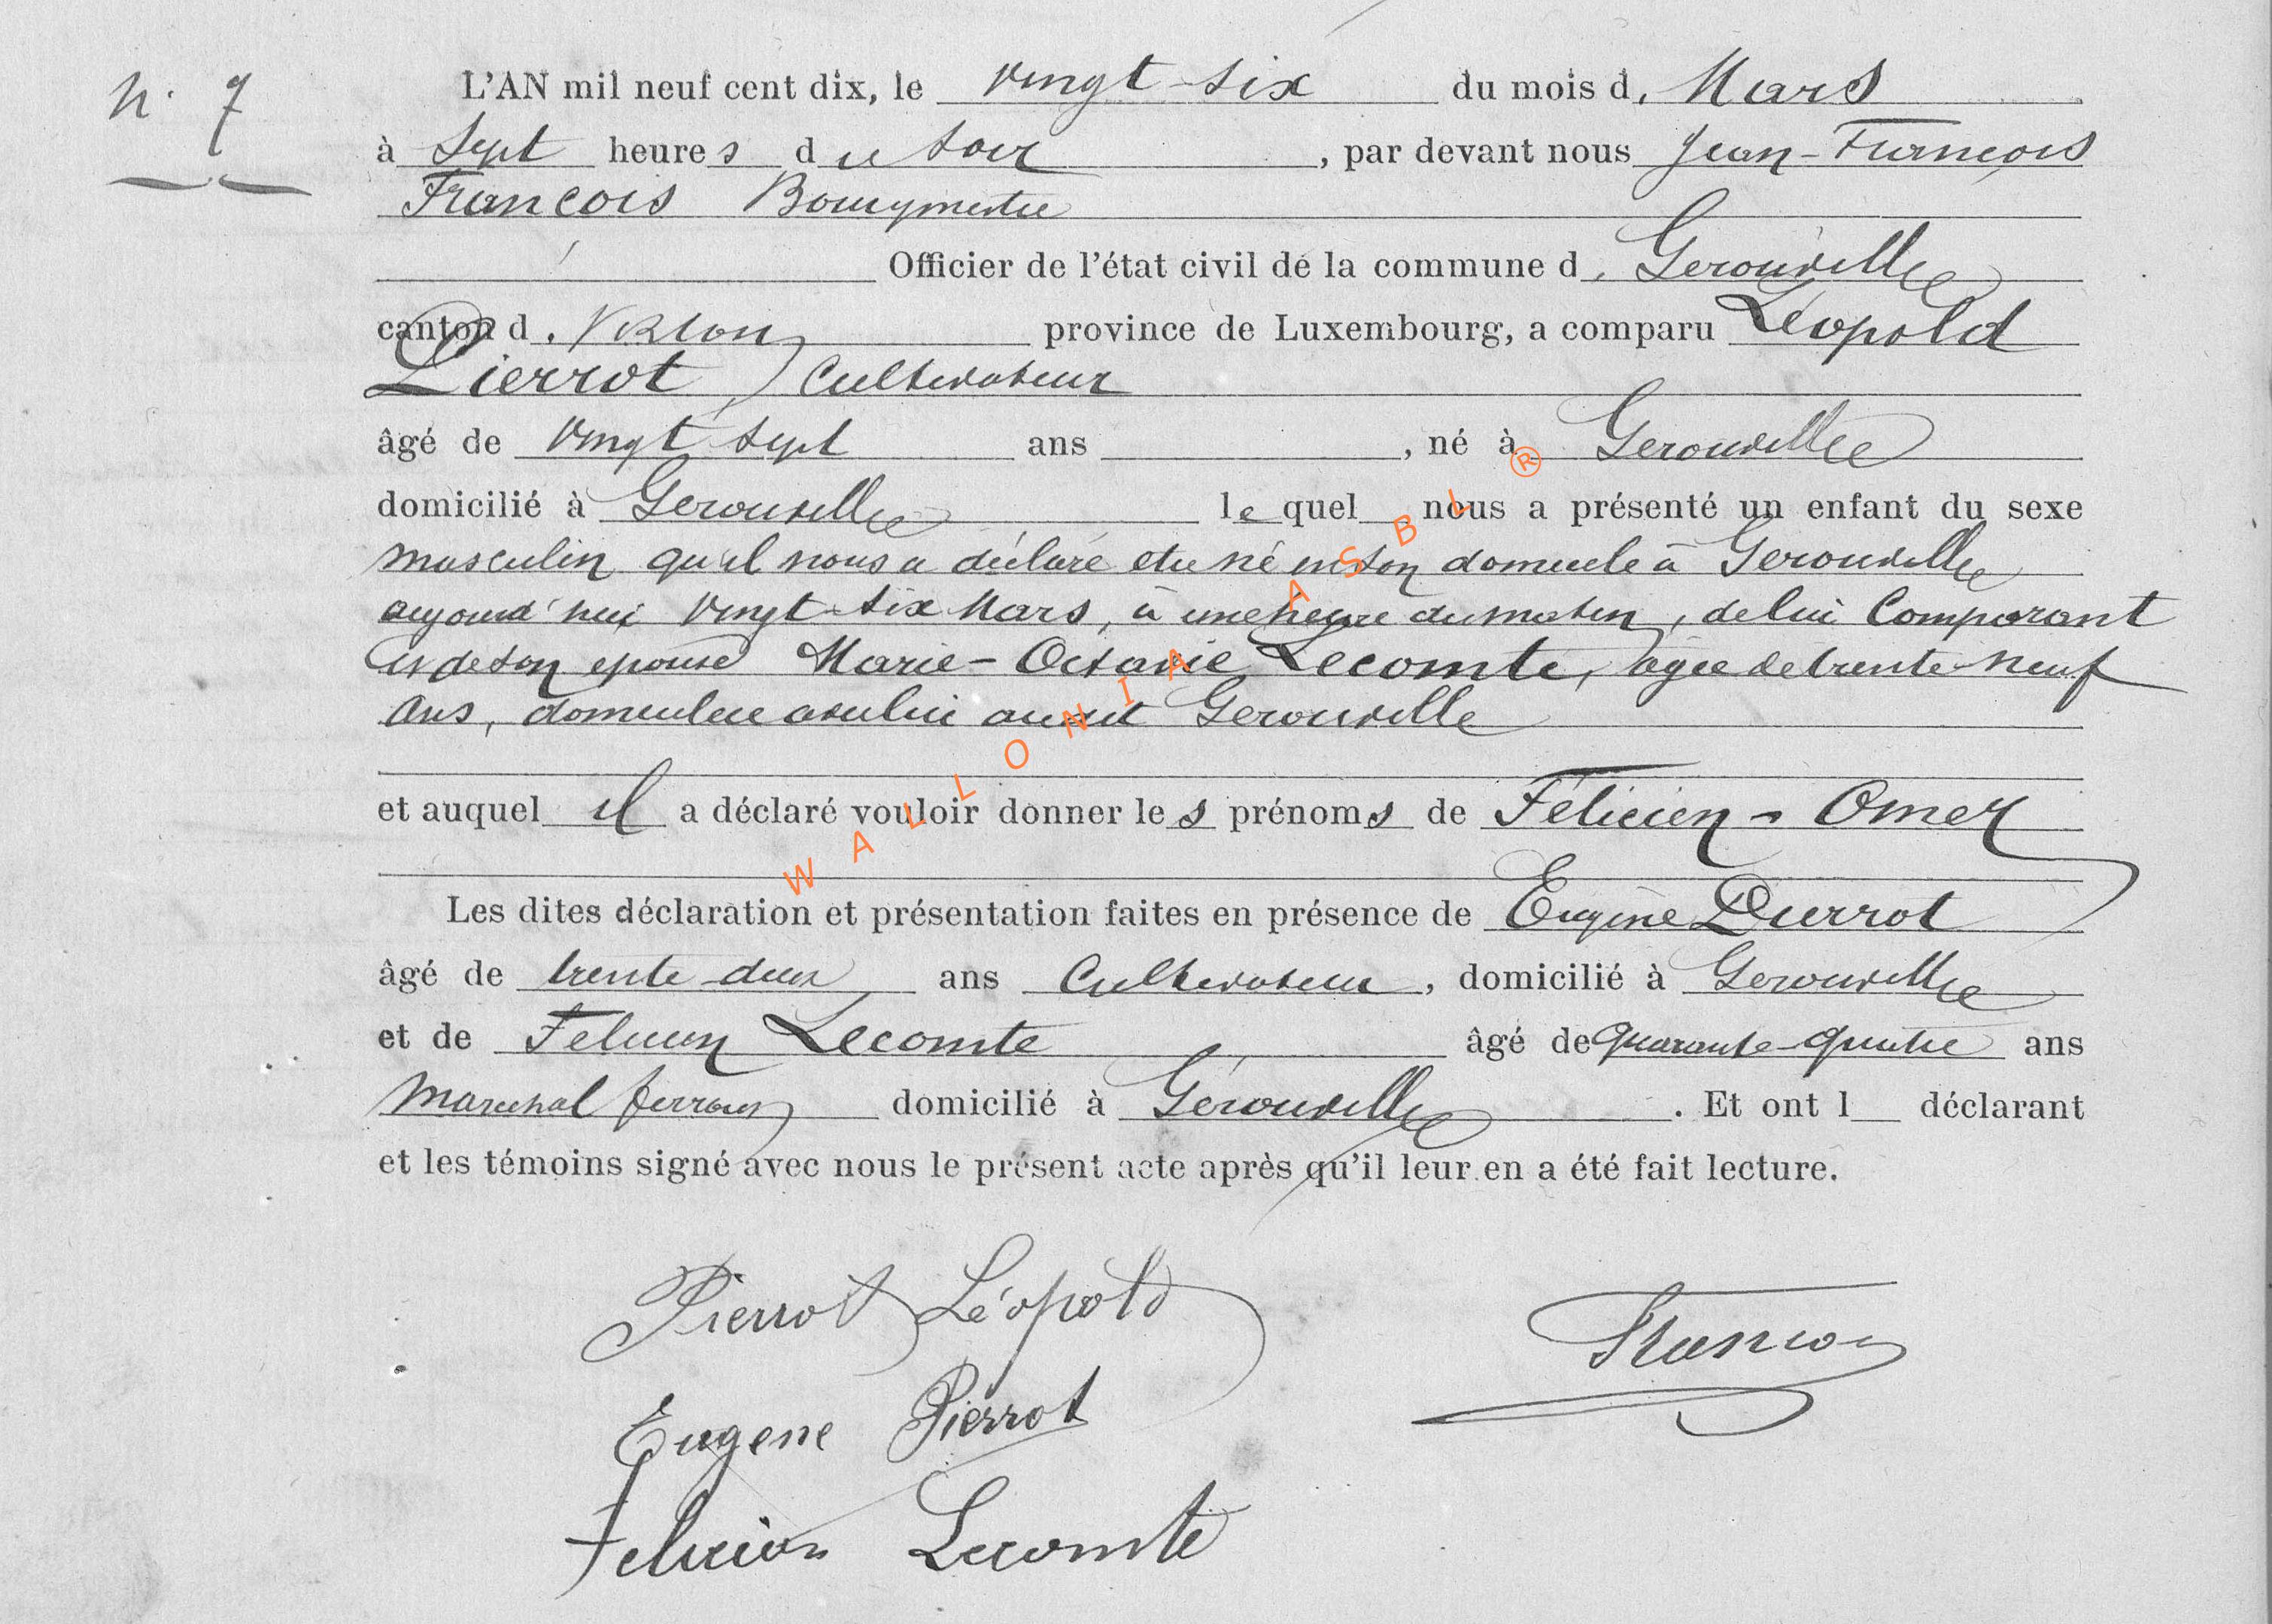 N. 7
L'AN mil neuf cent dix, le vingt-six du mois d, Mars
à Sept heures du soir, par devant nous Jean-François
François Bourgmestre
Officier de l'état civil de la commune d, Gerouville
canton d. Virton province de Luxembourg, a comparu Léopold
Pierrot, Cultivateur
âgé de vingt sept ans, né à Gerouville
domicilié à Gerouville lequel nous a présenté un enfant du sexe
masculin qu'il nous a déclaré etre né en son domicile à Gerouville
aujourd'hui vingt-six Mars, à une heure du matin, de lui Comparant
et de son epouse Marie-Octavie Lecomte, âgée de trente-neuf
ans, domiciliée avec lui audit Gerouville
et auquel il a déclaré vouloir donner les prénoms de Félicien-Omer
Les dites déclaration et présentation faites en présence de Eugène Pierrot
âgé de trente-deux ans Cultivateur, domicilié à Gerouville
et de Felicien Lecomte âgé de quarante-quatre ans
Marechal ferrant domicilié à Gérouville. Et ont l déclarant
et les témoins signé avec nous le présent acte après qu'il leur en a été fait lecture.
Pierrot Léopold
François
Eugene Pierrot
Felicien Lecomte
WALLONIA ASBL ®